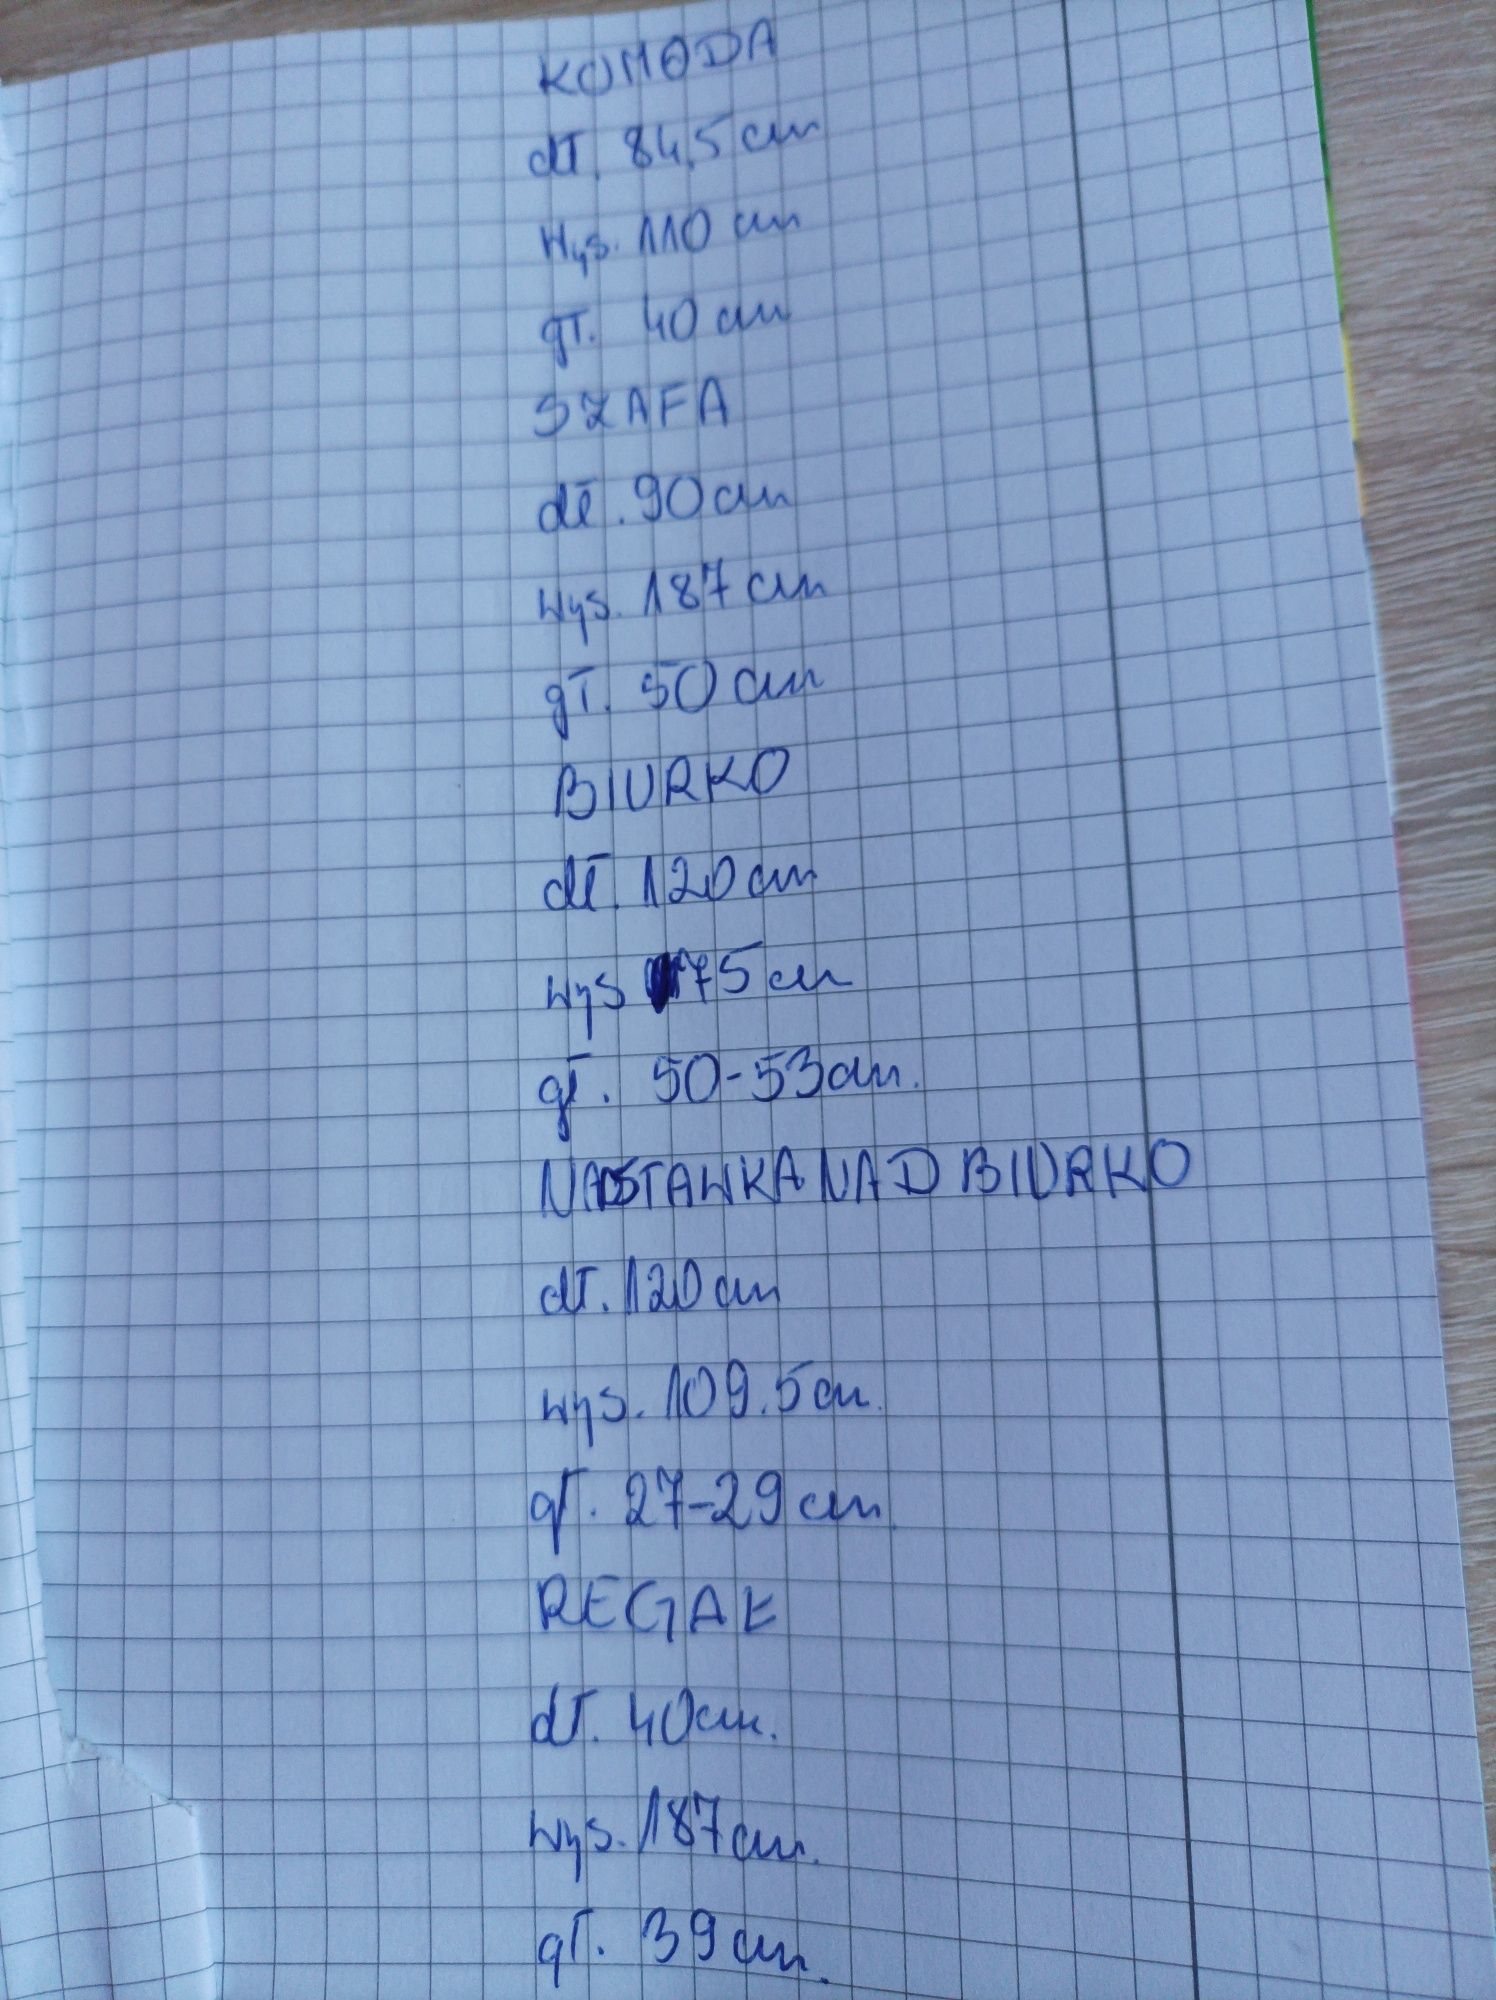 KOMODA
dł. 84,5 cm
Wys. 110 cm
gł. 40 cm
SZAFA
dł. 90 cm
wys. 187 cm
gł. 50 cm
BIURKO
dł. 120 cm
wys 75 cm
gł. 50-53 cm.
NADSTAWKA NAD BIURKO
dł. 120 cm
wys. 109.5 cm.
gł. 27-29 cm.
REGAŁ
dł. 40 cm.
wys. 187 cm.
gł. 39 cm.